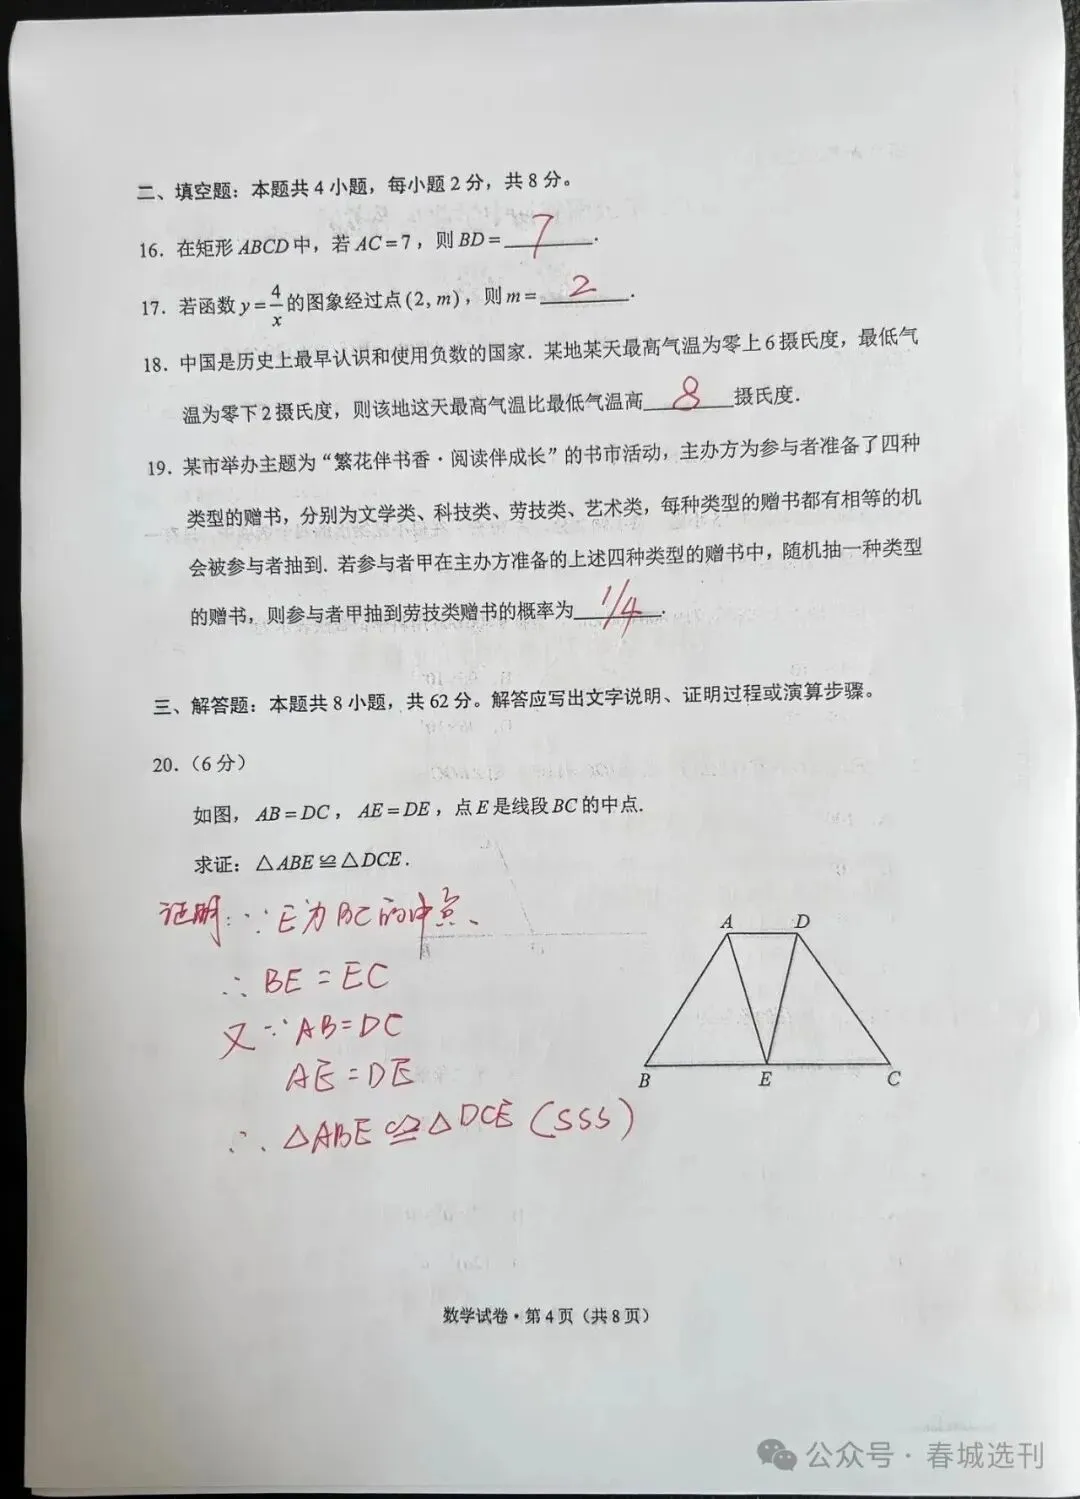 二、填空题：本题共4小题，每小题2分，共8分。
16．在矩形ABCD中，若AC=7，则BD=7．
17．若函数y=4/x的图象经过点(2, m)，则m=2．
18．中国是历史上最早认识和使用负数的国家．某地某天最高气温为零上6摄氏度，最低气
温为零下2摄氏度，则该地这天最高气温比最低气温高8摄氏度．
19．某市举办主题为“繁花伴书香·阅读伴成长”的书市活动，主办方为参与者准备了四种
类型的赠书，分别为文学类、科技类、劳技类、艺术类，每种类型的赠书都有相等的机
会被参与者抽到．若参与者甲在主办方准备的上述四种类型的赠书中，随机抽一种类型
的赠书，则参与者甲抽到劳技类赠书的概率为1/4．
三、解答题：本题共8小题，共62分。解答应写出文字说明、证明过程或演算步骤。
20．（6分）
如图，AB=DC，AE=DE，点E是线段BC的中点．
求证：△ABE≌△DCE．
证明：∵E为BC的中点、
∴BE=EC
又∵AB=DC
AE=DE
∴△ABE≌△DCE（SSS）
A D
B E C
数学试卷·第4页（共8页）
公众号·春城选刊